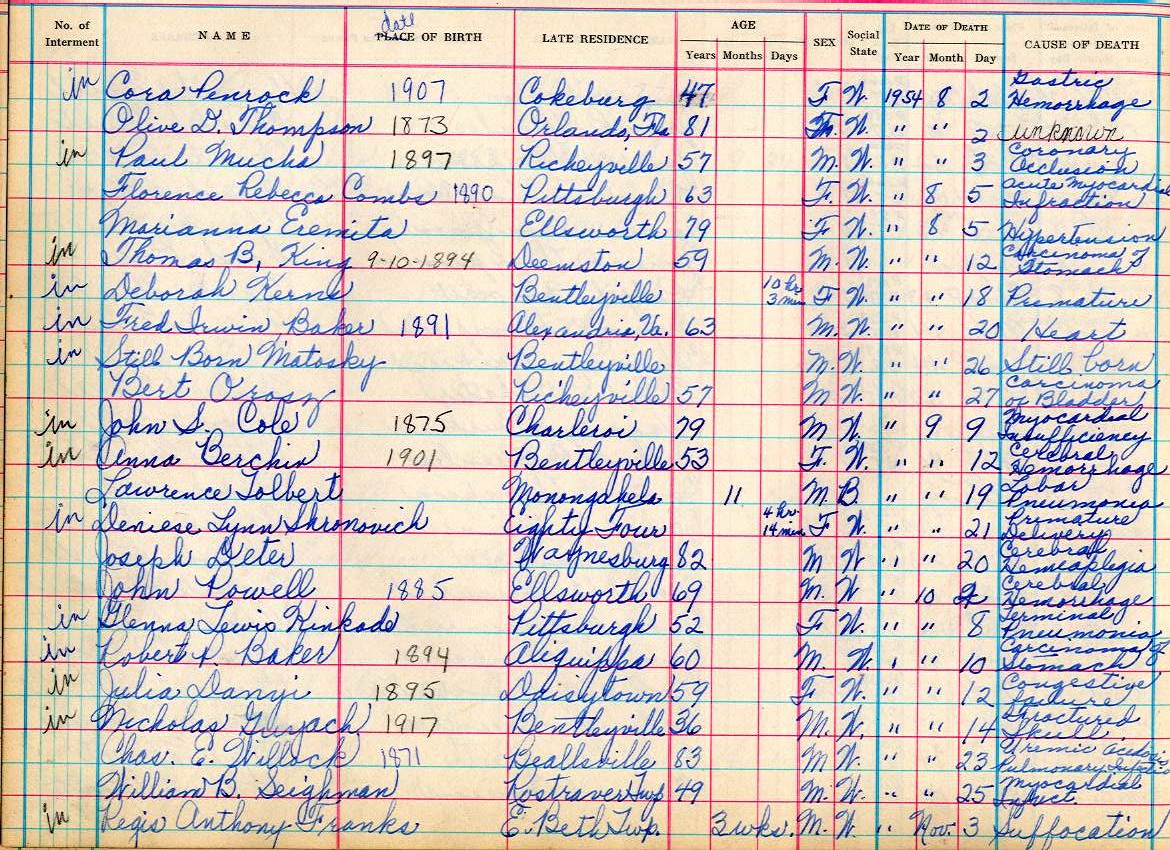 No. of Interment NAME date PLACE OF BIRTH LATE RESIDENCE AGE Years Months Days SEX Social State DATE OF DEATH Year Month Day CAUSE OF DEATH
in Cora Penrock 1907 Cokeburg 47 F W. 1954 8 2 Gastric Hemorrhage
Olive D. Thompson 1873 Orlando, Fla 81 F. W. " " 2 unknown
in Paul Mucha 1897 Richeyville 57 M. W. " " 3 Coronary Occlusion
Florence Rebecca Combs 1890 Pittsburgh 63 F. W. " 8 5 Acute Myocardial Infraction
Marianna Eremita Ellsworth 79 F W. " 8 5 Hypertension
in Thomas B. King 9-10-1894 Deemston 59 M. W. " " 12 Carcinoma of Stomach
in Deborah Kerns Bentleyville 10 hr 3 min F W. " " 18 Premature
in Fred Irwin Baker 1891 Alexandria, Va. 63 M. W. " " 20 Heart
in Still Born Matosky Bentleyville M. W. " " 26 Still born
Bert Orosz Richeyville 57 M W. " " 27 Carcinoma of Bladder
in John S. Cole 1875 Charleroi 79 M W. " 9 9 Myocardial Insufficiency
in Anna Berchin 1901 Bentleyville 53 F. W. " " 12 Cerebral Hemorrhage
Lawrence Tolbert Monongahela 11 M B. " " 19 Lobar Pneumonia
in Deniese Lynn Skronovich Eighty Four 4 hr 14 min F W. " " 21 Premature Delivery
Joseph Deter Waynesburg 82 M W " " 20 Cerebral Hemiaplegia
John Powell 1885 Ellsworth 69 M. W " 10 Cerebral Hemorrhage
in Glenna Lewis Kinkade Pittsburgh 52 F W. " " 8 Terminal Pneumonia
in Robert P. Baker 1894 Aliquippa 60 M. W. " " 10 Carcinoma of Stomach
in Julia Danyi 1895 Daisytown 59 F W. " " 12 Congestive Failure
in Nicholas 1917 Bentleyville 36 M. W. " " 14 Fractured Skull.
Chas. E. Willock 1871 Beallsville 83 M W. " " 23 Uremic Acidosis Pulmonary
William B. Seighman Rostraver Twp 49 M. W. " " 25 Myocardial Infarct.
in Regis Anthony Franks E. Beth Twp. 3 wks. M. W. " Nov. 3 Suffocation